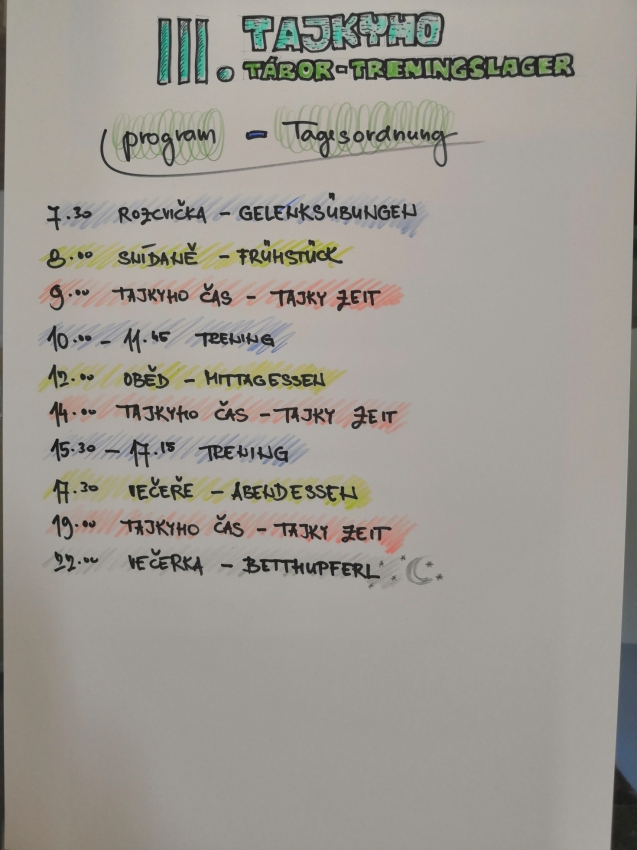 III. TAJKYHO
TÁBOR-TRENINGSLAGER
program - Tagesordnung
7.30 ROZCVIČKA - GELENKSÜBUNGEN
8.00 SNÍDANĚ - FRÜHSTÜCK
9.00 TAJKYHO ČAS - TAJKY ZEIT
10.00 - 11.45 TRENING
12.00 OBĚD - MITTAGESSEN
14.00 TAJKYHO ČAS - TAJKY ZEIT
15.30 - 17.15 TRENING
17.30 VEČEŘE - ABENDESSEN
19.00 TAJKYHO ČAS - TAJKY ZEIT
22.00 VEČERKA - BETTHUPFERL